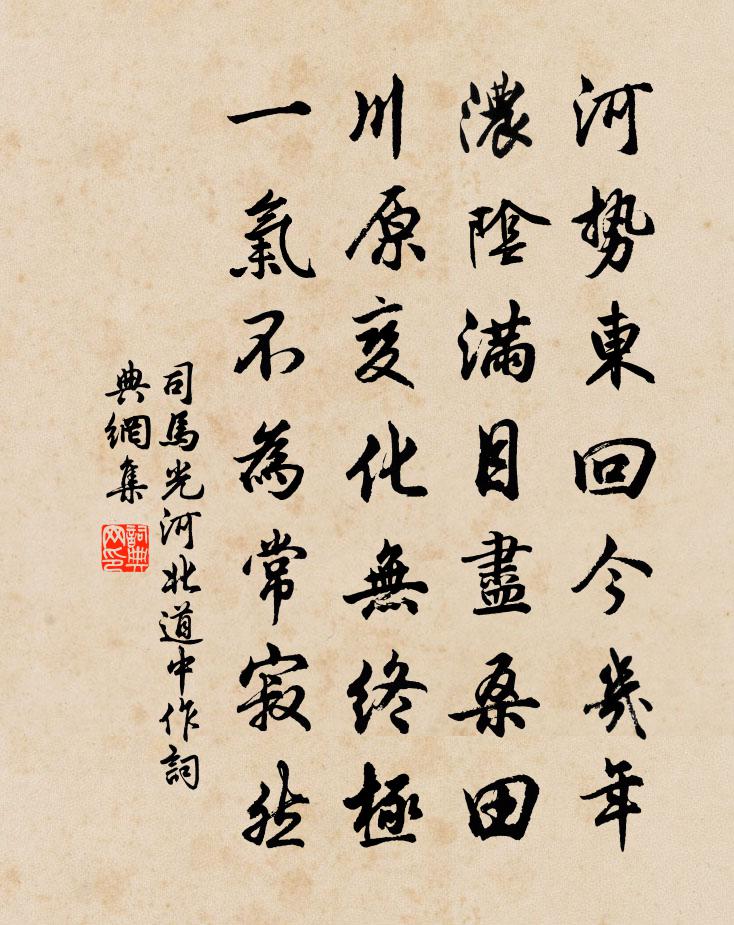 河勢東回今幾年
濃陰滿目盡桑田
川原变化無終極
一氣不為常寂然
司馬光河北道中作詞
典網集
詞典
网印